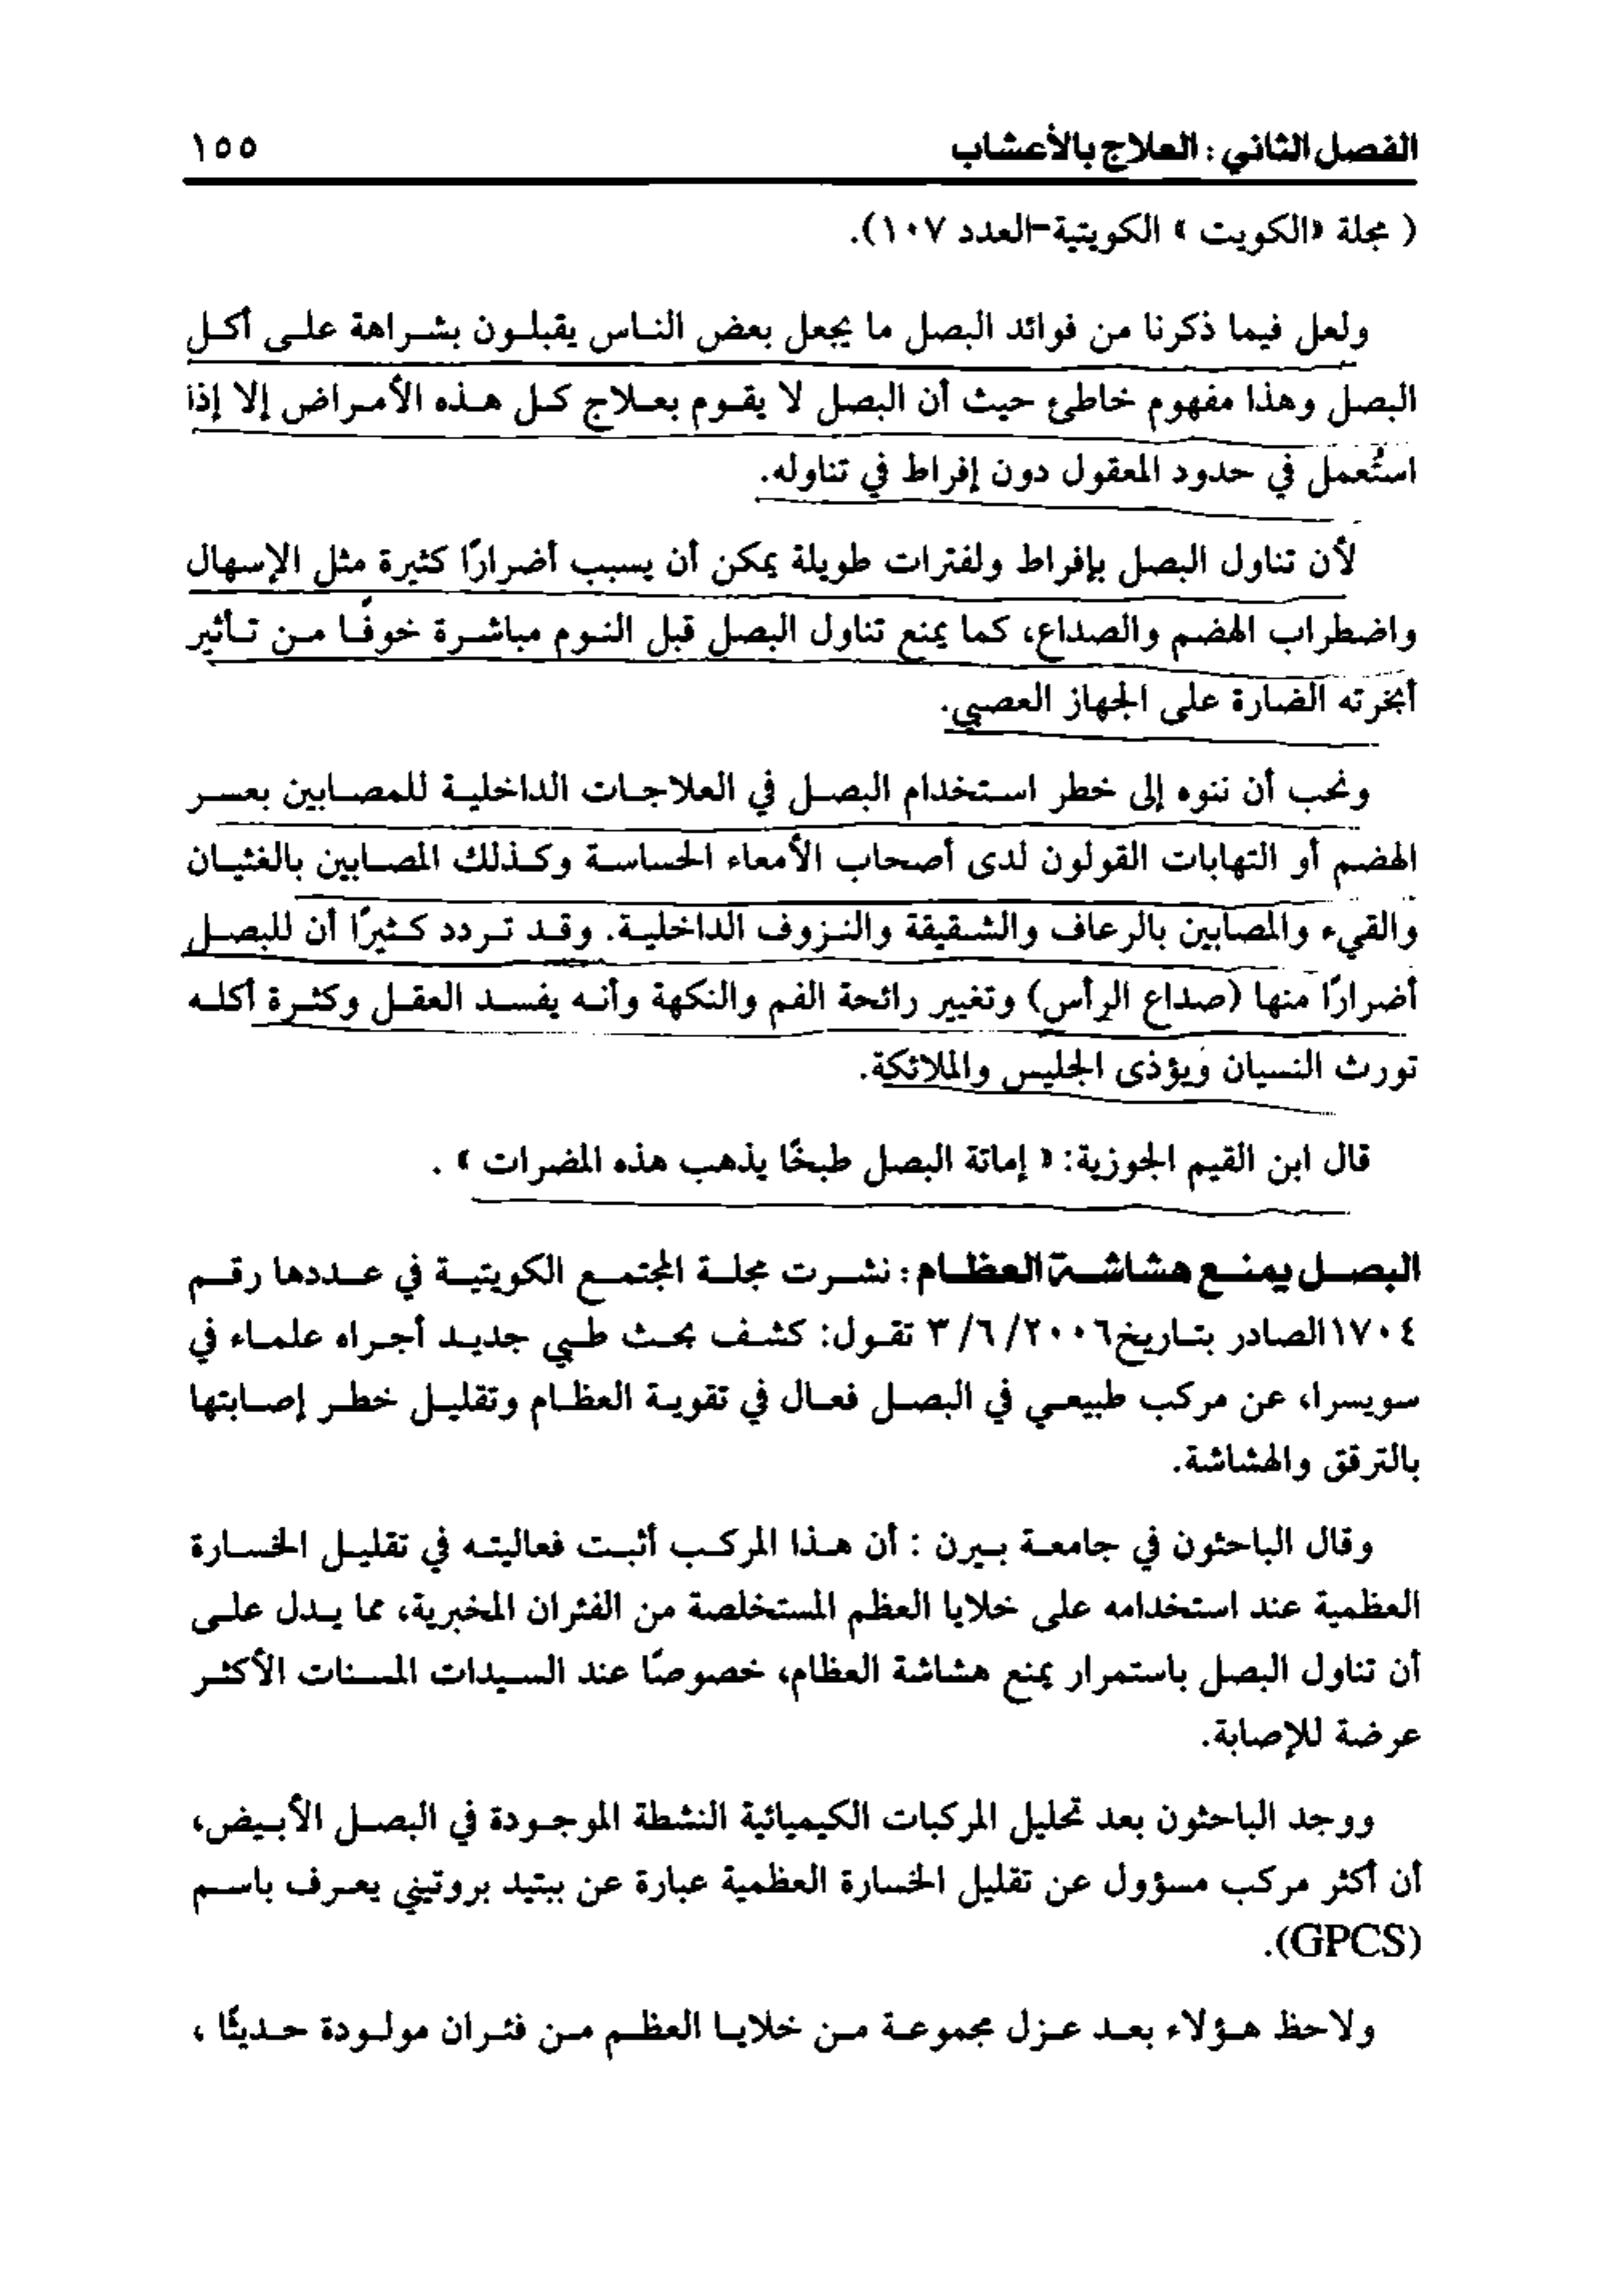 الفصل الثاني : العلاج بالأعشاب ١٥٥
( مجلة «الكويت » الكويتية-العدد ١٠٧).
ولعل فيما ذكرنا من فوائد البصل ما يجعل بعض الناس يقبلون بشراهة على أكل
البصل وهذا مفهوم خاطئ حيث أن البصل لا يقوم بعلاج كل هذه الأمراض إلا إذا
استُعمل في حدود المعقول دون إفراط في تناوله.
لأن تناول البصل بإفراط ولفترات طويلة يمكن أن يسبب أضرارًا كثيرة مثل الإسهال
واضطراب الهضم والصداع، كما يمنع تناول البصل قبل النوم مباشرة خوفًا من تأثير
أبخرته الضارة على الجهاز العصبي.
ونحب أن ننوه إلى خطر استخدام البصل في العلاجات الداخلية للمصابين بعسر
الهضم أو التهابات القولون لدى أصحاب الأمعاء الحساسة وكذلك المصابين بالغثيان
والقيء والمصابين بالرعاف والشقيقة والنزوف الداخلية. وقد تردد كثيرًا أن للبصل
أضرارًا منها (صداع الرأس) وتغيير رائحة الفم والنكهة وأنه يفسد العقل وكثرة أكله
تورث النسيان ويؤذى الجليس والملائكة.
قال ابن القيم الجوزية: « إماتة البصل طبخًا يذهب هذه المضرات » .
البصل يمنع هشاشة العظام : نشرت مجلة المجتمع الكويتية في عددها رقم
١٧٠٤الصادر بتاريخ٢٠٠٦/ ٦/ ٣ تقول: كشف بحث طبي جديد أجراه علماء في
سويسرا، عن مركب طبيعي في البصل فعال في تقوية العظام وتقليل خطر إصابتها
بالترقق والهشاشة.
وقال الباحثون في جامعة بيرن : أن هذا المركب أثبت فعاليته في تقليل الخسارة
العظمية عند استخدامه على خلايا العظم المستخلصة من الفئران المخبرية، مما يدل على
أن تناول البصل باستمرار يمنع هشاشة العظام، خصوصًا عند السيدات المسنات الأكثر
عرضة للإصابة.
ووجد الباحثون بعد تحليل المركبات الكيميائية النشطة الموجودة في البصل الأبيض،
أن أكثر مركب مسؤول عن تقليل الخسارة العظمية عبارة عن ببتيد بروتيني يعرف باسم
(GPCS).
ولاحظ هؤلاء بعد عزل مجموعة من خلايا العظم من فئران مولودة حديثًا ،